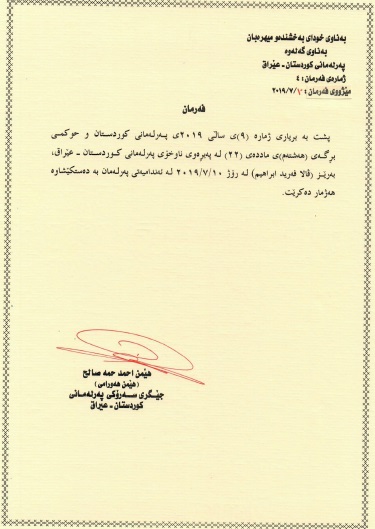 بەناوی خودای بەخشندەو میهرەبان
بەناوی گەلەوە
پەرلەمانی کوردستان - عێراق
ژمارەی فەرمان: ٤
مێژووی فەرمان: ٢٠١٩/٧/١٠
فەرمان
پشت بە بریاری ژمارە (٩)ی ساڵی ٢٠١٩ی پەرلەمانی کوردستان و حوکمی
برگەی (هەشتەم)ی ماددەی (٢٢) لە پەیرەوی ناوخۆی پەرلەمانی کوردستان - عێراق،
بەرێز (ڤالا فەرید ابراهیم) لە رۆژ ٢٠١٩/٧/١٠ لە ئەندامیەتی پەرلەمان بە دەستکێشاوە
هەژمار دەکرێت.
هێمن احمد حمه صالح
(هێمن هەورامی)
جێگری سەرۆکی پەرلەمانی
کوردستان - عیراق